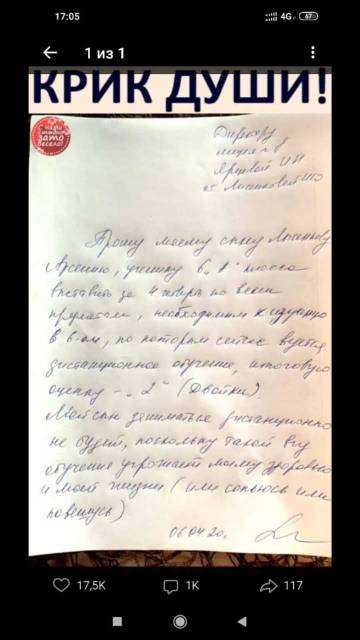 17:05
4G
67
1 из 1
КРИК ДУШИ!
зато
весело!
Директору
лицея
Ярцевой
от
Прошу моему сыну
Арсению, ученику 6 „ " класса
выставить за 4 четверть по всем
предметам, необходимым к
в 6-ом, по которым сейчас ведется
дистанционное обучение, итоговую
оценку - „2" (Двойки).
Мой сын заниматься дистанционно
не будет, поскольку такой вид
обучения угрожает моему здоровью
и моей жизни (или сопьюсь или
повешусь)
06.04.20г.
17,5K
1K
117